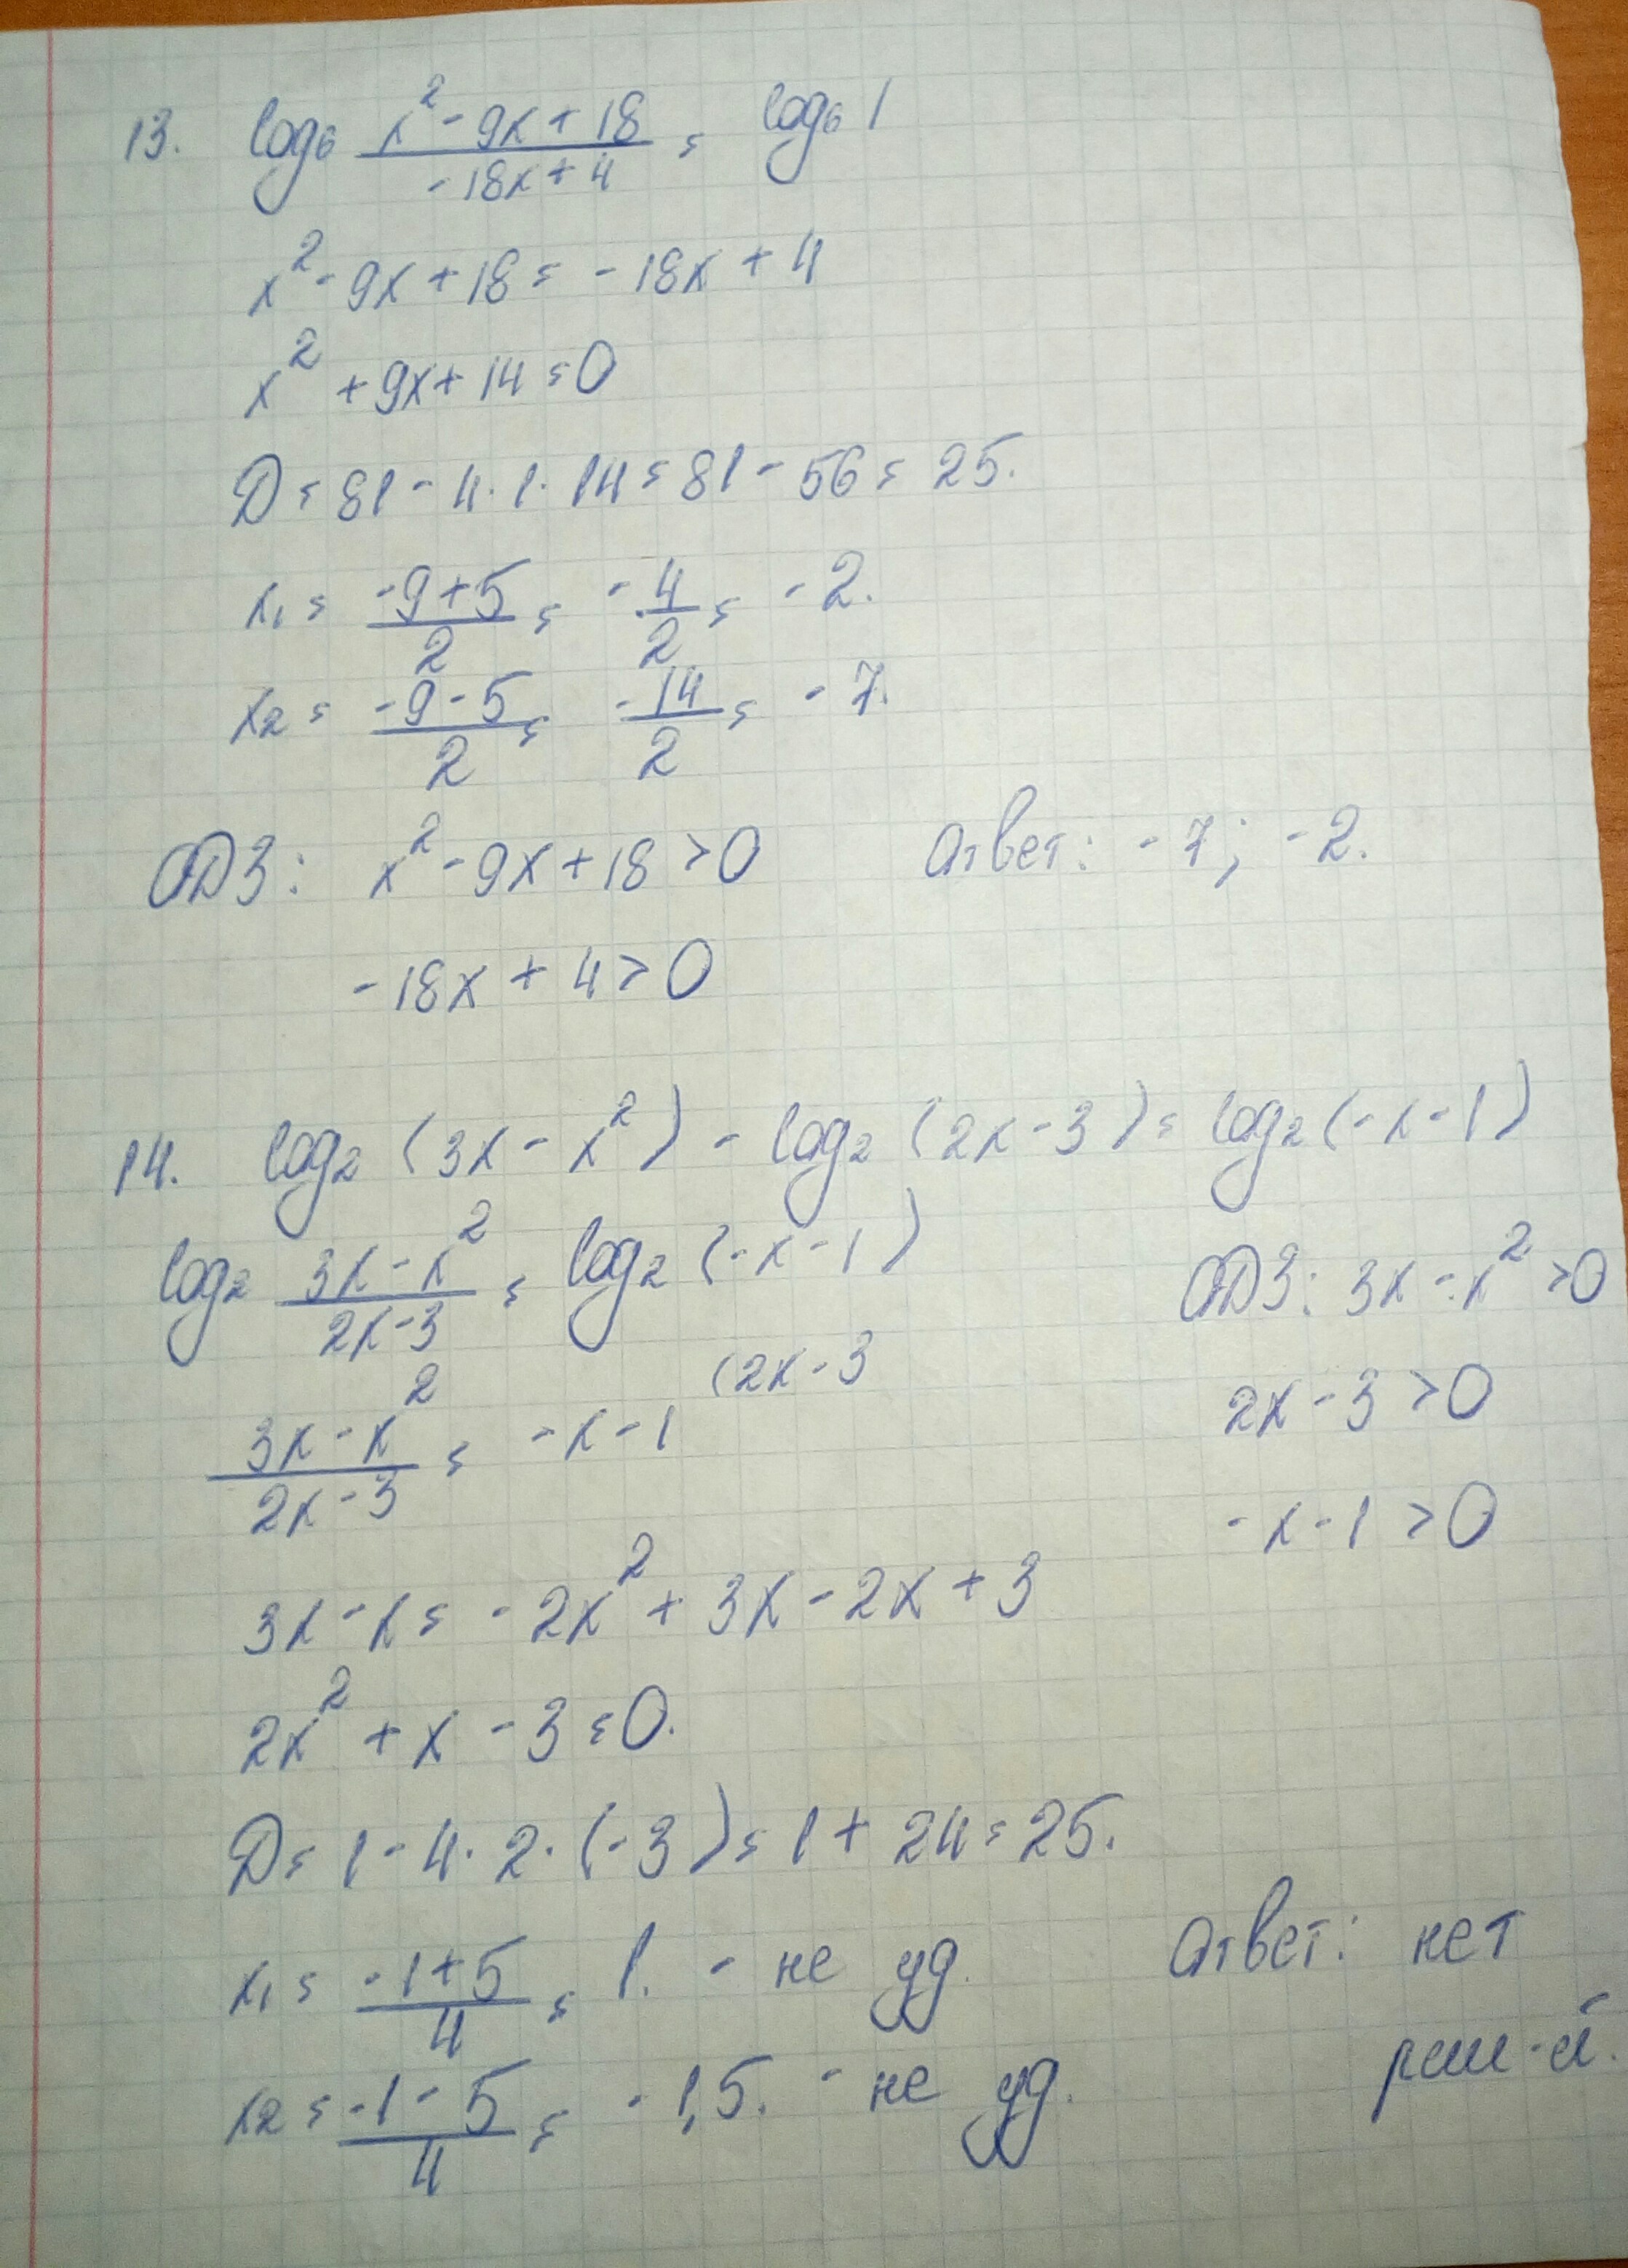 13. log₆ (x² - 9x + 18)/(-18x + 4) = log₆ 1
x² - 9x + 18 = -18x + 4
x² + 9x + 14 = 0
D = 81 - 4 · 1 · 14 = 81 - 56 = 25.
x₁ = (-9 + 5)/2 = -4/2 = -2.
x₂ = (-9 - 5)/2 = -14/2 = -7.
ОДЗ: x² - 9x + 18 > 0 Ответ: -7; -2.
-18x + 4 > 0
14. log₂ (3x - x²) - log₂ (2x - 3) = log₂ (-x - 1)
log₂ (3x - x²)/(2x - 3) = log₂ (-x - 1) ОДЗ: 3x - x² > 0
(3x - x²)/(2x - 3) = -x - 1 (2x - 3 2x - 3 > 0
-x - 1 > 0
3x - x = -2x² + 3x - 2x + 3
2x² + x - 3 = 0.
D = 1 - 4 · 2 · (-3) = 1 + 24 = 25.
x₁ = (-1 + 5)/4 = 1. - не уд. Ответ: нет
x₂ = (-1 - 5)/4 = -1,5. - не уд. реш-й.